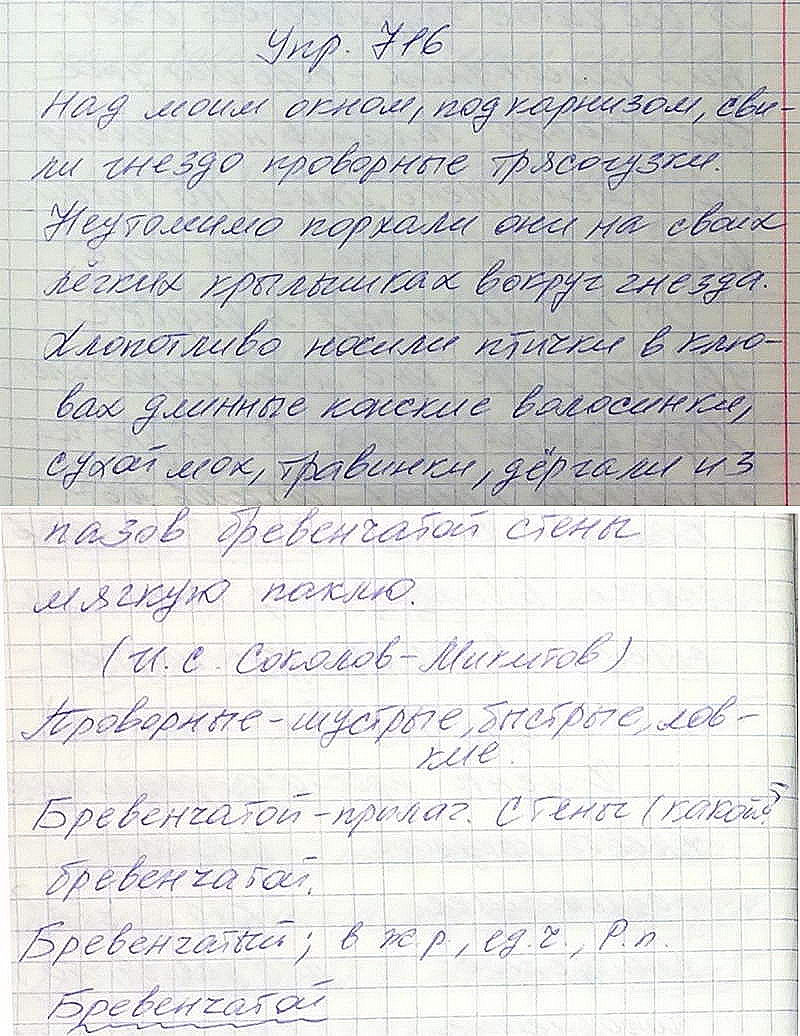 Упр. 716
Над моим окном, под карнизом, сви-
ли гнездо проворные трясогузки.
Неутомимо порхали они на своих
лёгких крылышках вокруг гнезда.
Хлопотливо носили птички в клю-
вах длинные конские волосинки,
сухой мох, травинки, дёргали из
пазов бревенчатой стены
мягкую паклю.
(И.С. Соколов-Микитов)
Проворные - шустрые, быстрые, лов-
кие.
Бревенчатой - прилаг. Стены (какой?)
бревенчатой.
Бревенчатый; в ж.р., ед.ч., Р.п.
Бревенчатой